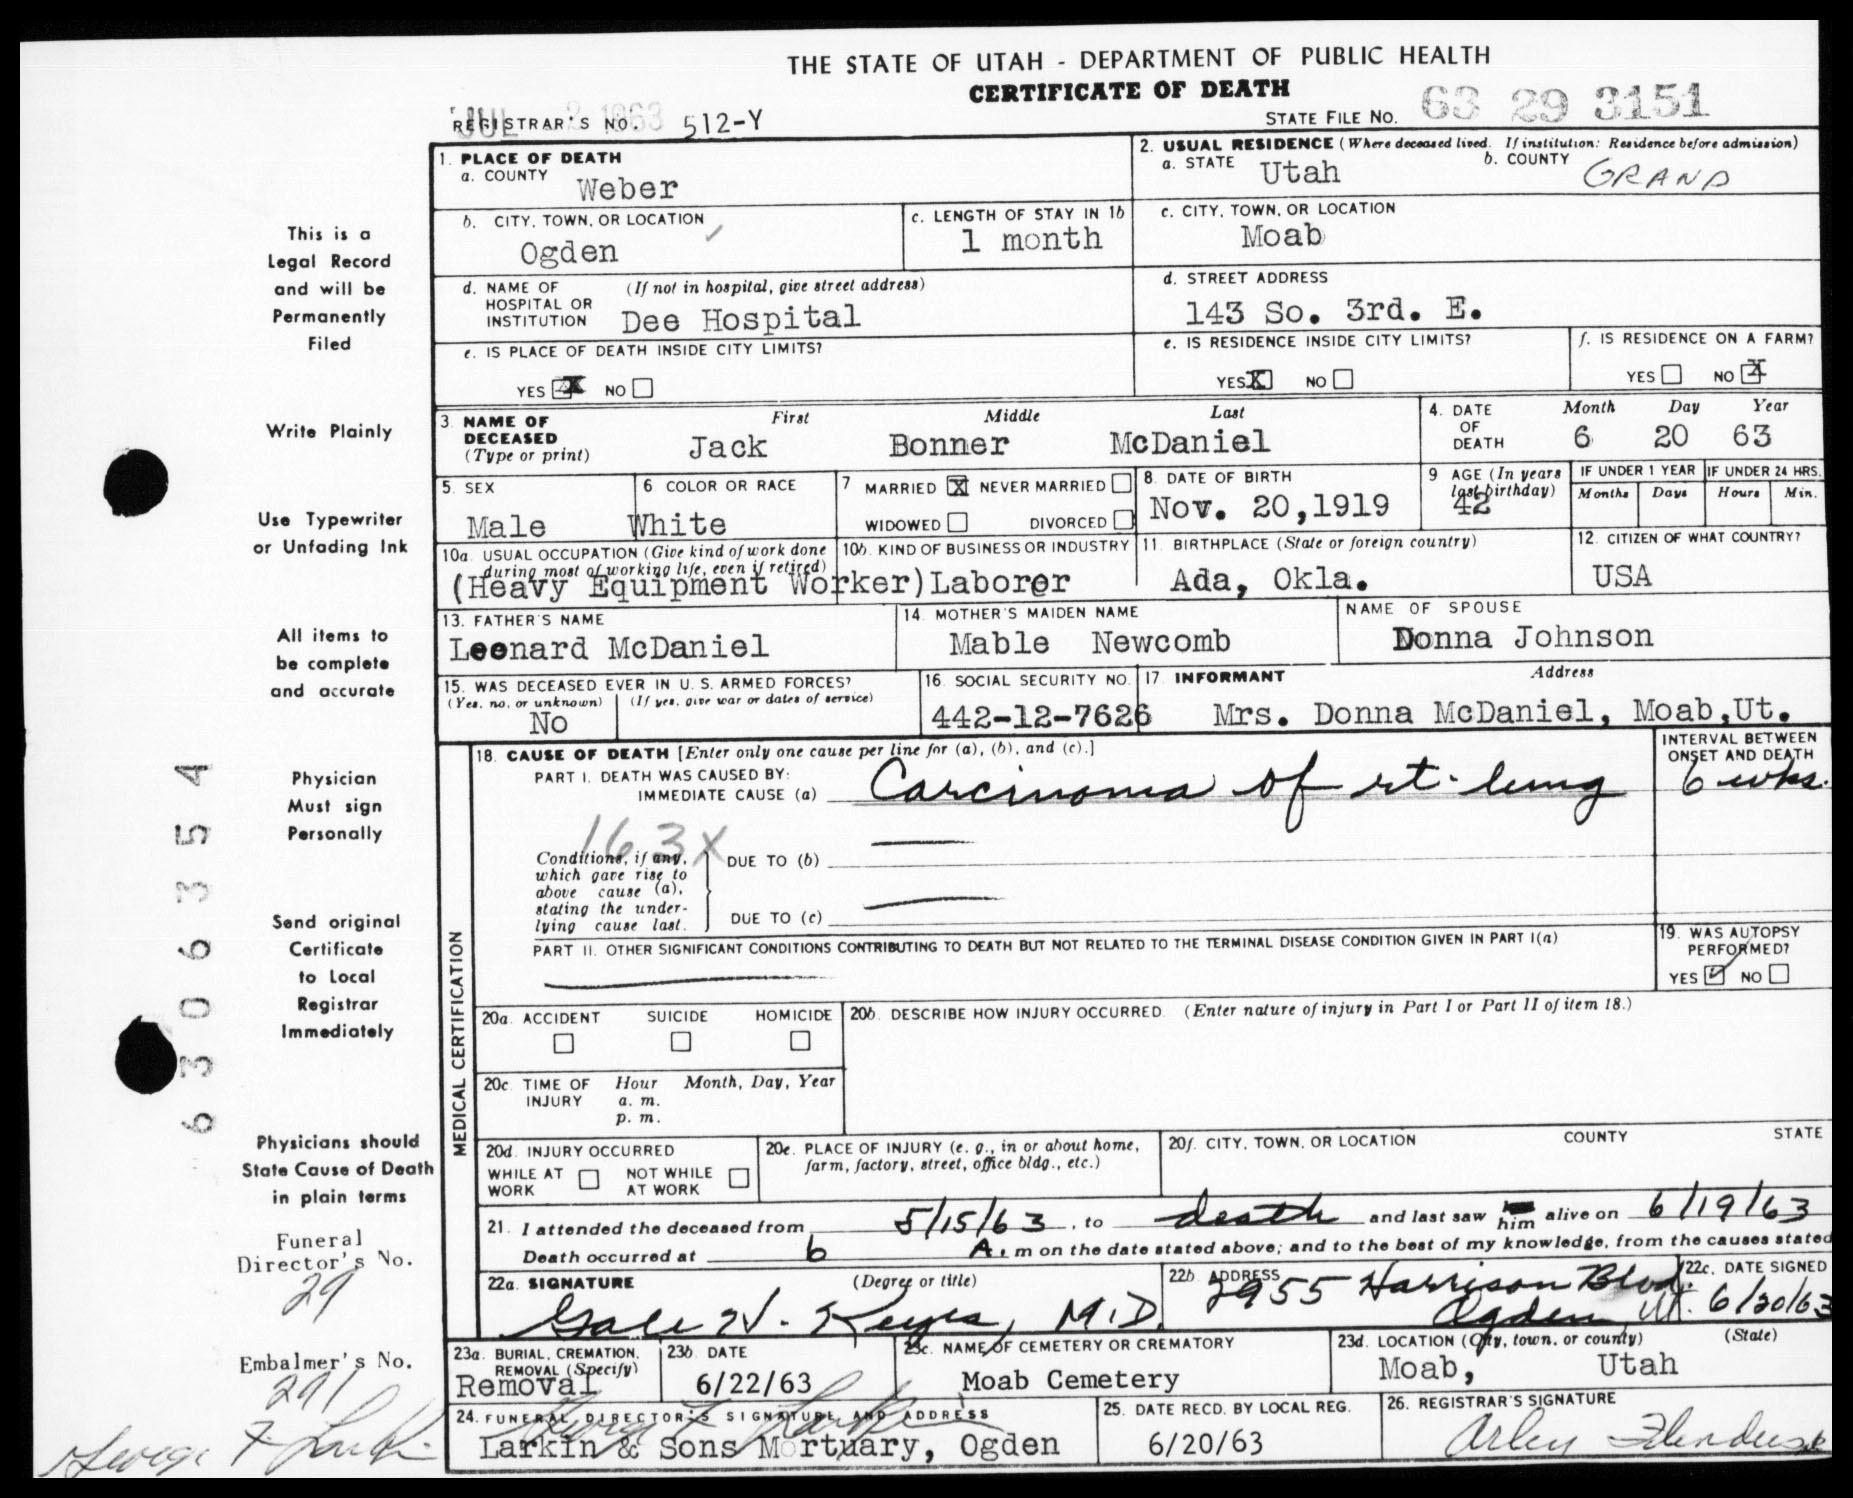 THE STATE OF UTAH - DEPARTMENT OF PUBLIC HEALTH
CERTIFICATE OF DEATH
JUL 2 1963
REGISTRAR'S NO. 512-Y
STATE FILE NO. 63 29 3151
1. PLACE OF DEATH
a. COUNTY Weber
2. USUAL RESIDENCE (Where deceased lived. If institution: Residence before admission)
a. STATE Utah b. COUNTY GRAND
b. CITY, TOWN, OR LOCATION
Ogden
c. LENGTH OF STAY IN 1b
1 month
c. CITY, TOWN, OR LOCATION
Moab
d. NAME OF HOSPITAL OR INSTITUTION (If not in hospital, give street address)
Dee Hospital
d. STREET ADDRESS
143 So. 3rd. E.
e. IS PLACE OF DEATH INSIDE CITY LIMITS?
YES X NO
e. IS RESIDENCE INSIDE CITY LIMITS?
YES X NO
f. IS RESIDENCE ON A FARM?
YES NO X
3. NAME OF DECEASED (Type or print)
First Middle Last
Jack Bonner McDaniel
4. DATE OF DEATH
Month Day Year
6 20 63
5. SEX
Male
6 COLOR OR RACE
White
7 MARRIED X NEVER MARRIED
WIDOWED DIVORCED
8. DATE OF BIRTH
Nov. 20,1919
9 AGE (In years last birthday)
42
IF UNDER 1 YEAR
Months Days
IF UNDER 24 HRS.
Hours Min.
10a. USUAL OCCUPATION (Give kind of work done during most of working life, even if retired)
10b. KIND OF BUSINESS OR INDUSTRY
(Heavy Equipment Worker)Laborer
11. BIRTHPLACE (State or foreign country)
Ada, Okla.
12. CITIZEN OF WHAT COUNTRY?
USA
13. FATHER'S NAME
Leonard McDaniel
14. MOTHER'S MAIDEN NAME
Mable Newcomb
NAME OF SPOUSE
Donna Johnson
15. WAS DECEASED EVER IN U. S. ARMED FORCES?
(Yes, no, or unknown) (If yes, give war or dates of service)
No
16. SOCIAL SECURITY NO.
442-12-7626
17. INFORMANT Address
Mrs. Donna McDaniel, Moab,Ut.
MEDICAL CERTIFICATION
18. CAUSE OF DEATH [Enter only one cause per line for (a), (b), and (c).]
PART I. DEATH WAS CAUSED BY:
IMMEDIATE CAUSE (a) Carcinoma of rt. lung
INTERVAL BETWEEN ONSET AND DEATH
6 wks.
163X
Conditions, if any, which gave rise to above cause (a), stating the underlying cause last.
DUE TO (b)
DUE TO (c)
PART II. OTHER SIGNIFICANT CONDITIONS CONTRIBUTING TO DEATH BUT NOT RELATED TO THE TERMINAL DISEASE CONDITION GIVEN IN PART I(a)
19. WAS AUTOPSY PERFORMED?
YES ✓ NO
20a. ACCIDENT SUICIDE HOMICIDE
20b. DESCRIBE HOW INJURY OCCURRED. (Enter nature of injury in Part I or Part II of item 18.)
20c. TIME OF INJURY Hour Month, Day, Year
a. m.
p. m.
20d. INJURY OCCURRED
WHILE AT WORK NOT WHILE AT WORK
20e. PLACE OF INJURY (e. g., in or about home, farm, factory, street, office bldg., etc.)
20f. CITY, TOWN, OR LOCATION COUNTY STATE
21. I attended the deceased from 5/15/63, to death and last saw him alive on 6/19/63
Death occurred at 6 A. m on the date stated above; and to the best of my knowledge, from the causes stated
22a. SIGNATURE (Degree or title)
Gale W. Keyes, M.D.
22b. ADDRESS
2955 Harrison Blvd.
Ogden Ut.
22c. DATE SIGNED
6/20/63
23a. BURIAL, CREMATION, REMOVAL (Specify)
Removal
23b. DATE
6/22/63
23c. NAME OF CEMETERY OR CREMATORY
Moab Cemetery
23d. LOCATION (City, town, or county) (State)
Moab, Utah
24. FUNERAL DIRECTOR'S SIGNATURE AND ADDRESS
Larkin & Sons Mortuary, Ogden
25. DATE RECD. BY LOCAL REG.
6/20/63
26. REGISTRAR'S SIGNATURE
Arley
This is a
Legal Record
and will be
Permanently
Filed
Write Plainly
Use Typewriter
or Unfading Ink
All items to
be complete
and accurate
Physician
Must sign
Personally
Send original
Certificate
to Local
Registrar
Immediately
Physicians should
State Cause of Death
in plain terms
Funeral
Director's No.
29
Embalmer's No.
291
George F. Larkin
6306354